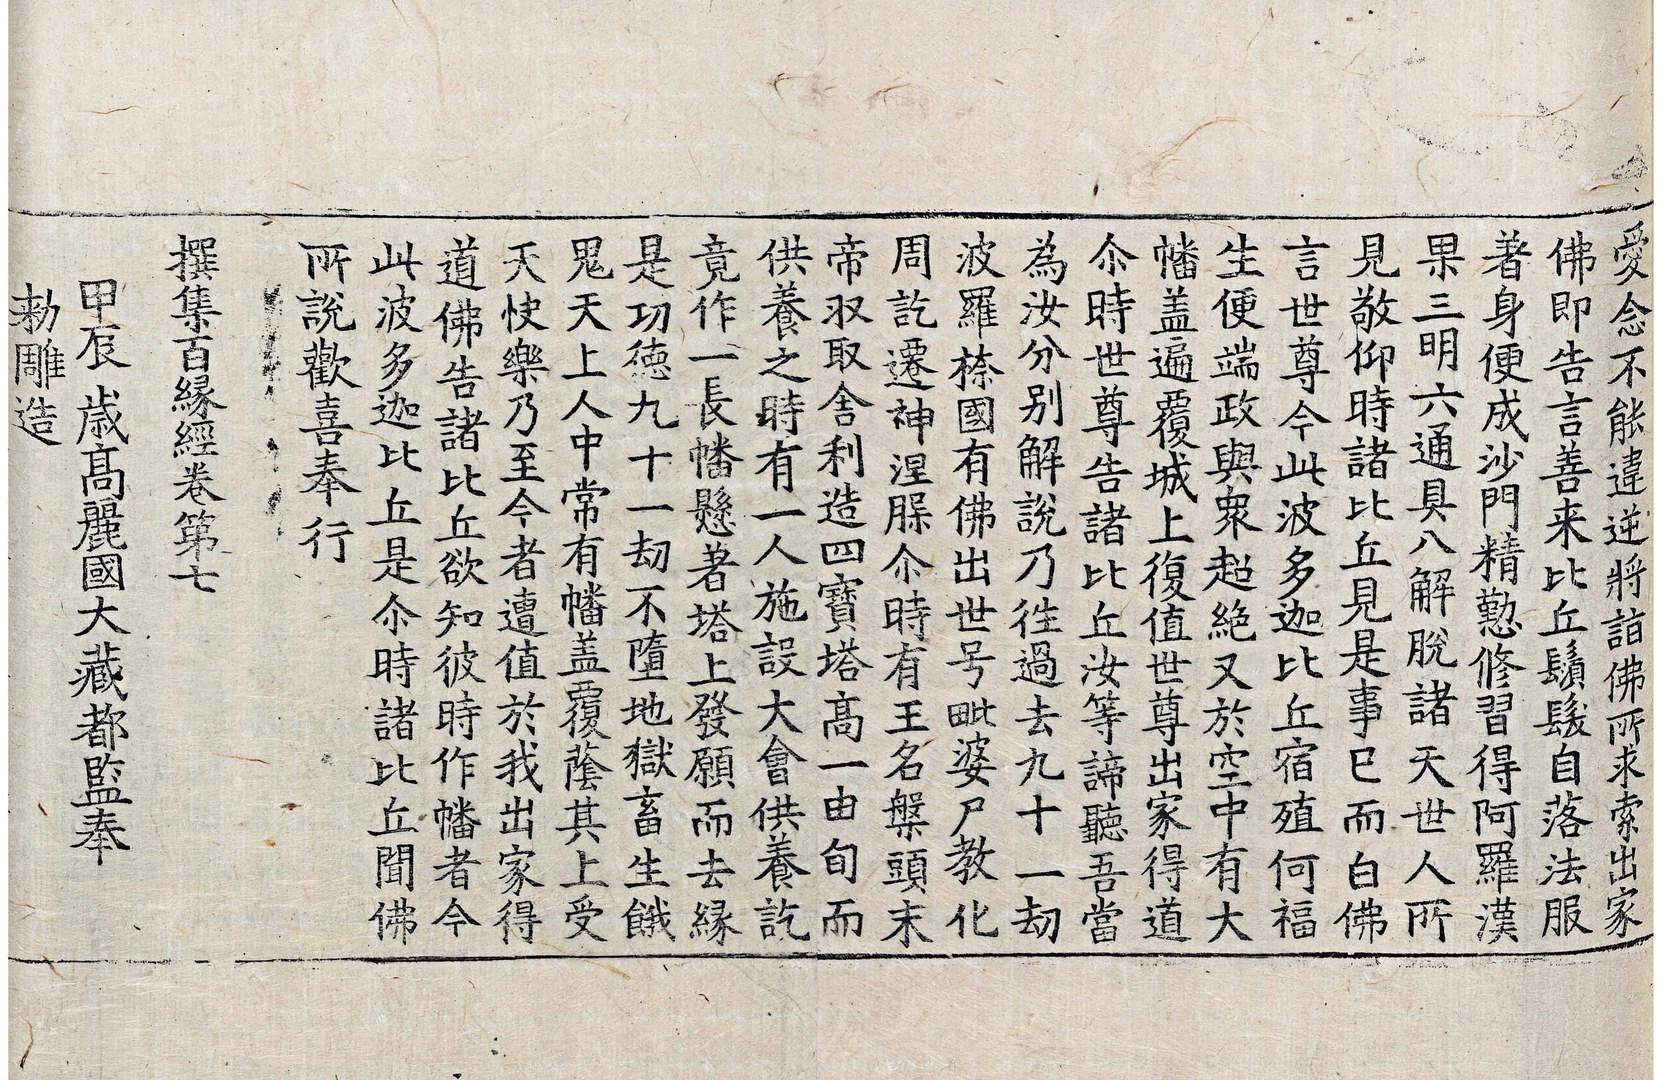 愛念不能違逆將詣佛所求索出家
佛即告言善来比丘鬚髮自落法服
著身便成沙門精懃修習得阿羅漢
果三明六通具八解脫諸天世人所
見敬仰時諸比丘見是事已而白佛
言世尊今此波多迦比丘宿殖何福
生便端政與衆超絶又於空中有大
幡盖遍覆城上復值世尊出家得道
尒時世尊告諸比丘汝等諦聽吾當
為汝分別解說乃徃過去九十一劫
波羅㮈國有佛出世号毗婆尸教化
周訖遷神涅䐟尒時有王名槃頭末
帝収取舍利造四寶塔高一由旬而
供養之時有一人施設大會供養訖
竟作一長幡懸著塔上發願而去緣
是功徳九十一劫不墮地獄畜生餓
鬼天上人中常有幡盖覆蔭其上受
天快樂乃至今者遭值於我出家得
道佛告諸比丘欲知彼時作幡者今
此波多迦比丘是尒時諸比丘聞佛
所說歡喜奉行
撰集百緣經卷第七
甲辰歳高麗國大藏都監奉
勅雕造